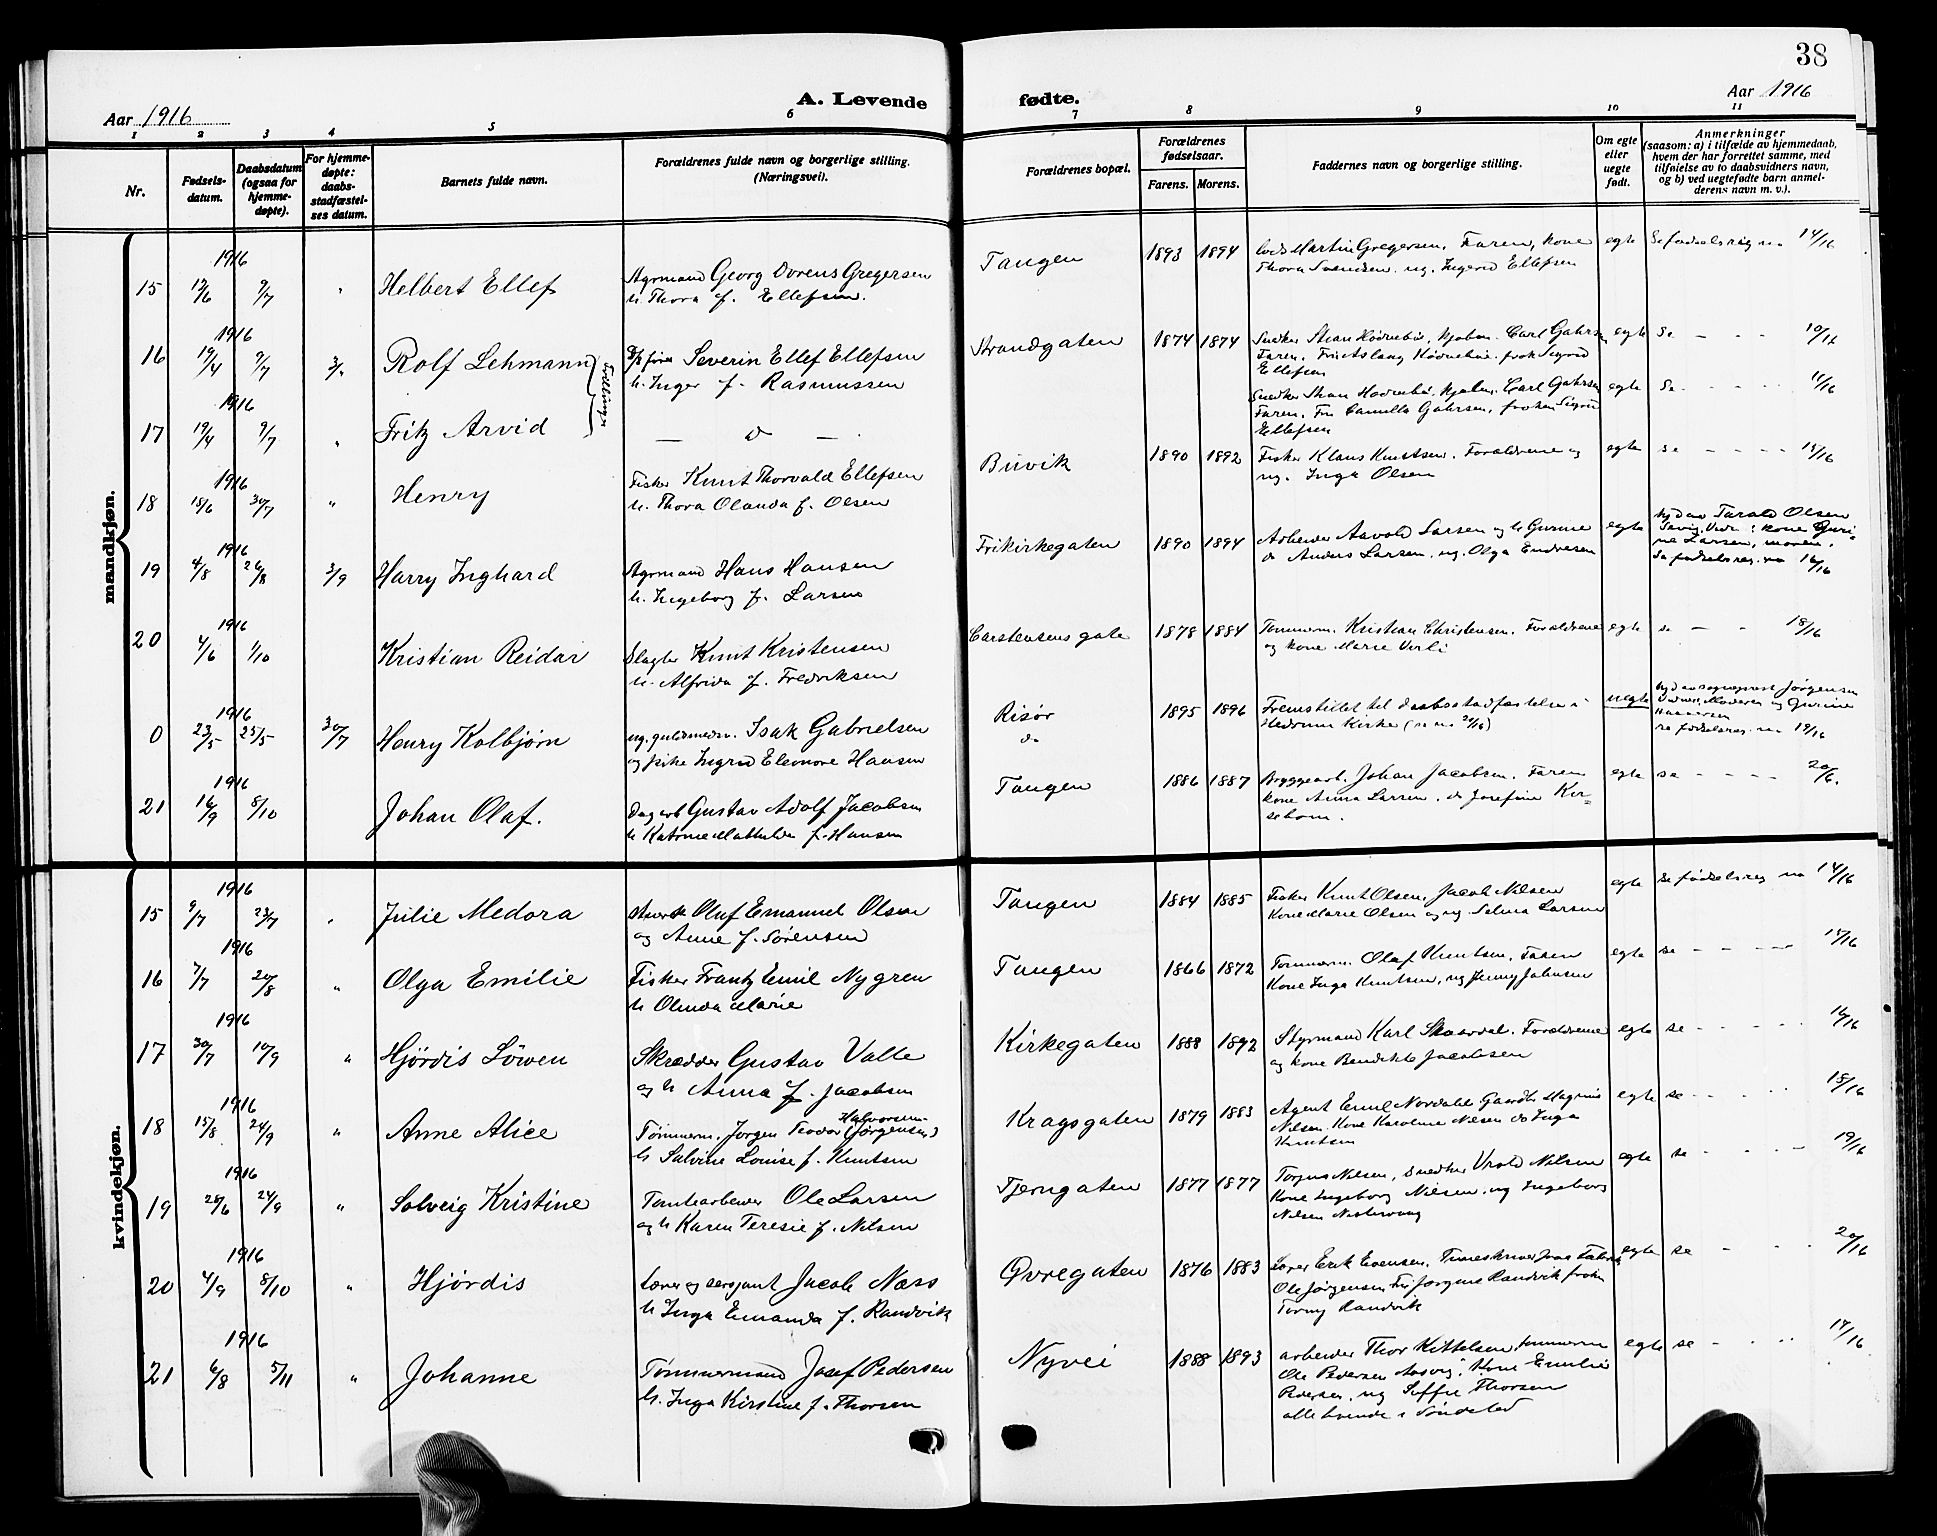 38
Aar 1916 A. Levende fødte. Aar 1916
1 2 3 4 5 6 7 8 9 10 11
Nr.
Fødsels-
datum.
Daabsdatum
(ogsaa for
hjemme-
døpte).
For hjemme-
døpte:
daabs-
stadfæstel-
ses datum.
Barnets fulde navn.
Forældrenes fulde navn og borgerlige stilling.
(Næringsvei).
Forældrenes bopæl.
Forældrenes
fødselsaar.
Farens. Morens.
Faddernes navn og borgerlige stilling.
Om egte
eller
uegte
født.
Anmerkninger
(saasom: a) i tilfælde av hjemmedaab,
hvem der har forrettet samme, med
tilføielse av to daabsvidners navn,
og b) ved uegtefødte barn anmel-
derens navn m. v.).
mandkjøn.
1916
15 12/6 9/7 " Helbert Ellef
Agrmand Georg Dorens Gregersen
h. Thora f. Ellefsen.
Tangen 1893 1894
Lods Martin Gregersen, Faren, kone
Thora Svendsen, ug. Ingerid Ellefsen
egte Se fødselsreg no 14/16
1916
16 19/4 9/7 Rolf Lehmann
Severin Ellef Ellefsen
h. Inger f. Rasmussen
Trillinger
Strandgaten 1874 1874
Carl Gahrsen
Faren, frøk Sigrid
Ellefsen
egte Se - - - 10/16
1916
17 19/4 9/7 " Fritz Arvid
— d —
Carl Gahrsen
Faren, Fru Camilla Gahrsen, frøken Sigrid
Ellefsen
egte Se - - - 11/16
1916
18 18/6 30/7 " Henry
Fisker Knut Thorvald Ellefsen
h. Thora Olanda f. Olsen
Buvik 1890 1892
Fisker Klaus Knutsen. Forældrene og
ug. Inga Olsen
egte se - - - - 15/16
1916
19 4/8 26/8 3/9 Harry Inghard
Agrmand Hans Hansen
h. Ingeborg f. Larsen
Frikirkegaten 1890 1894
Arbeider Aavold Larsen og h Gurine
do Anders Larsen, ug. Olga Endresen
egte
hjd av Tarald Olsen
kone Guri-
ne Larsen, moren.
Se fødselsreg. no 16/16
1916
20 4/6 1/10 Kristian Reidar
Slagter Knut Kristensen
h. Alfrida f. Fredriksen
Carstensens gate 1878 1884
Tømmerm. Kristian Christensen. Forældrene
og kone Marie Verli
egte se - - 18/16
1916
0 23/5 25/5 30/7 Henry Kolbjørn
ug. guldsmedsv. Isak Gabrielsen
og pike Ingrid Eleonore Hansen
Risør
do
1895 1896
Fremstillet til daabsstadfæstelse i
Hedrum Kirke
uegte
hjd av sogneprest Jørgensen
Hansen
se fødselsreg. no 19/16
1916
21 16/9 8/10 Johan Olaf.
Dagarb Gustav Adolf Jacobsen
h Katrine Mathilde f. Hansen
Tangen 1886 1887
Bryggearb. Johan Jacobsen. Faren
kone Anna Larsen, do Josefine Kir-
sebom.
egte se - - - - 20/6.
kvindekjøn.
1916
15 9/7 23/7 " Julie Medora
Oluf Emanuel Olsen
og Anne f. Sörensen
Tangen 1884 1885
Fisker Knut Olsen, Jacob Nilsen
Kone Marie Olsen og ug. Selma Larsen
egte se fødselsreg no 14/16
1916
16 7/7 20/8 " Olga Emilie
Fisker Frantz Emil Nygren
h Olinda Marie
Tangen 1866 1872
Tømmerm. Olaf Knutsen, Faren
Kone Inga Knutsen, ug Jenny Johnsen
egte se - - - - 15/16
1916
17 30/7 10/9 " Hjördis Löwen
Skrædder Gustav Valle
og h Anna f. Jacobsen
Kirkegaten 1888 1892
Styrmand Karl Skaardal. Forældrene
og kone Bendikte Jacobsen
egte se - - - - 16/16
1916
18 15/8 24/9 " Anne Alice
Halvorsen
Tømmerm. Jørgen Teodor (Jørgensen)
h Salvine Louise f. Knutsen
Kragsgaten 1879 1883
Agent Emil Nordahl. Gaardbr Magnus
Nilsen. Kone Karoline Nilsen do Inga
Knutsen
egte se - - - - 18/16
1916
19 26/6 24/9 " Solveig Kristine
Tomtearbeider Ole Larsen
og h Karen Teresie f. Nilsen
Tjerngaten 1877 1877
Torjus Nilsen, Snedker Vrold Nilsen
Kone Ingeborg Nielsen, ug Ingeborg
Nilsen
egte se - - - - 19/16
1916
20 4/9 8/10 " Hjördis
Lærer og sergeant Jacob Næss
h Inga Emanda f. Randvik
Øvregaten 1876 1883
Lærer Erik Evensen,
Ole Jørgensen Fru Jørgine Randvik frøken
Tormy Randvik
egte se - - - 20/16
1916
21 6/8 5/11 " Johanne
Tömmermand Josef Pedersen
h. Inga Kirstine f. Thorsen
Nyvei 1888 1893
arbeider Thor Kittelsen tømmerm
Ole Pedersen Aasvig, Kone Emilie
Pedersen, ug Soffie Thorsen
alle boende i Söndeled
egte se - - - 17/16